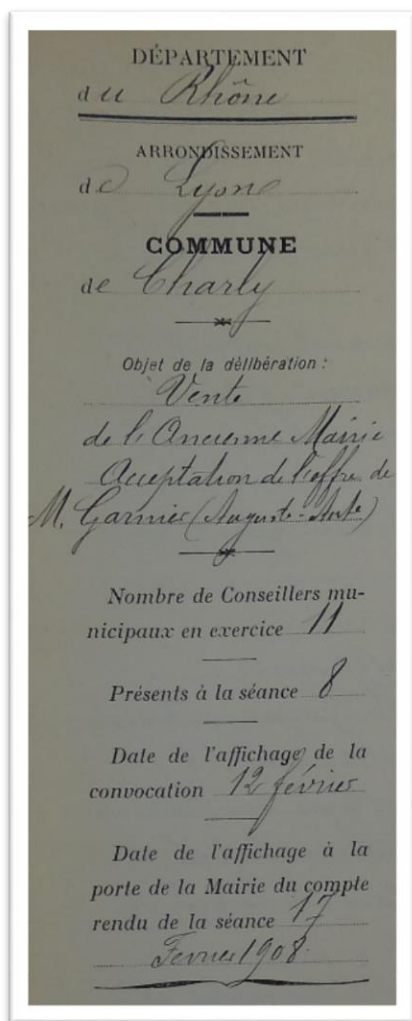 DÉPARTEMENT
du Rhône
ARRONDISSEMENT
de Lyon
COMMUNE
de Charly
Objet de la délibération :
Vente
de l'Ancienne Mairie
Acceptation de l'offre de
M. Garnier (Auguste-
Nombre de Conseillers mu-
nicipaux en exercice 11
Présents à la séance 8
Date de l'affichage de la
convocation 12 février
Date de l'affichage à la
porte de la Mairie du compte
rendu de la séance 17
Fevrier 1908.